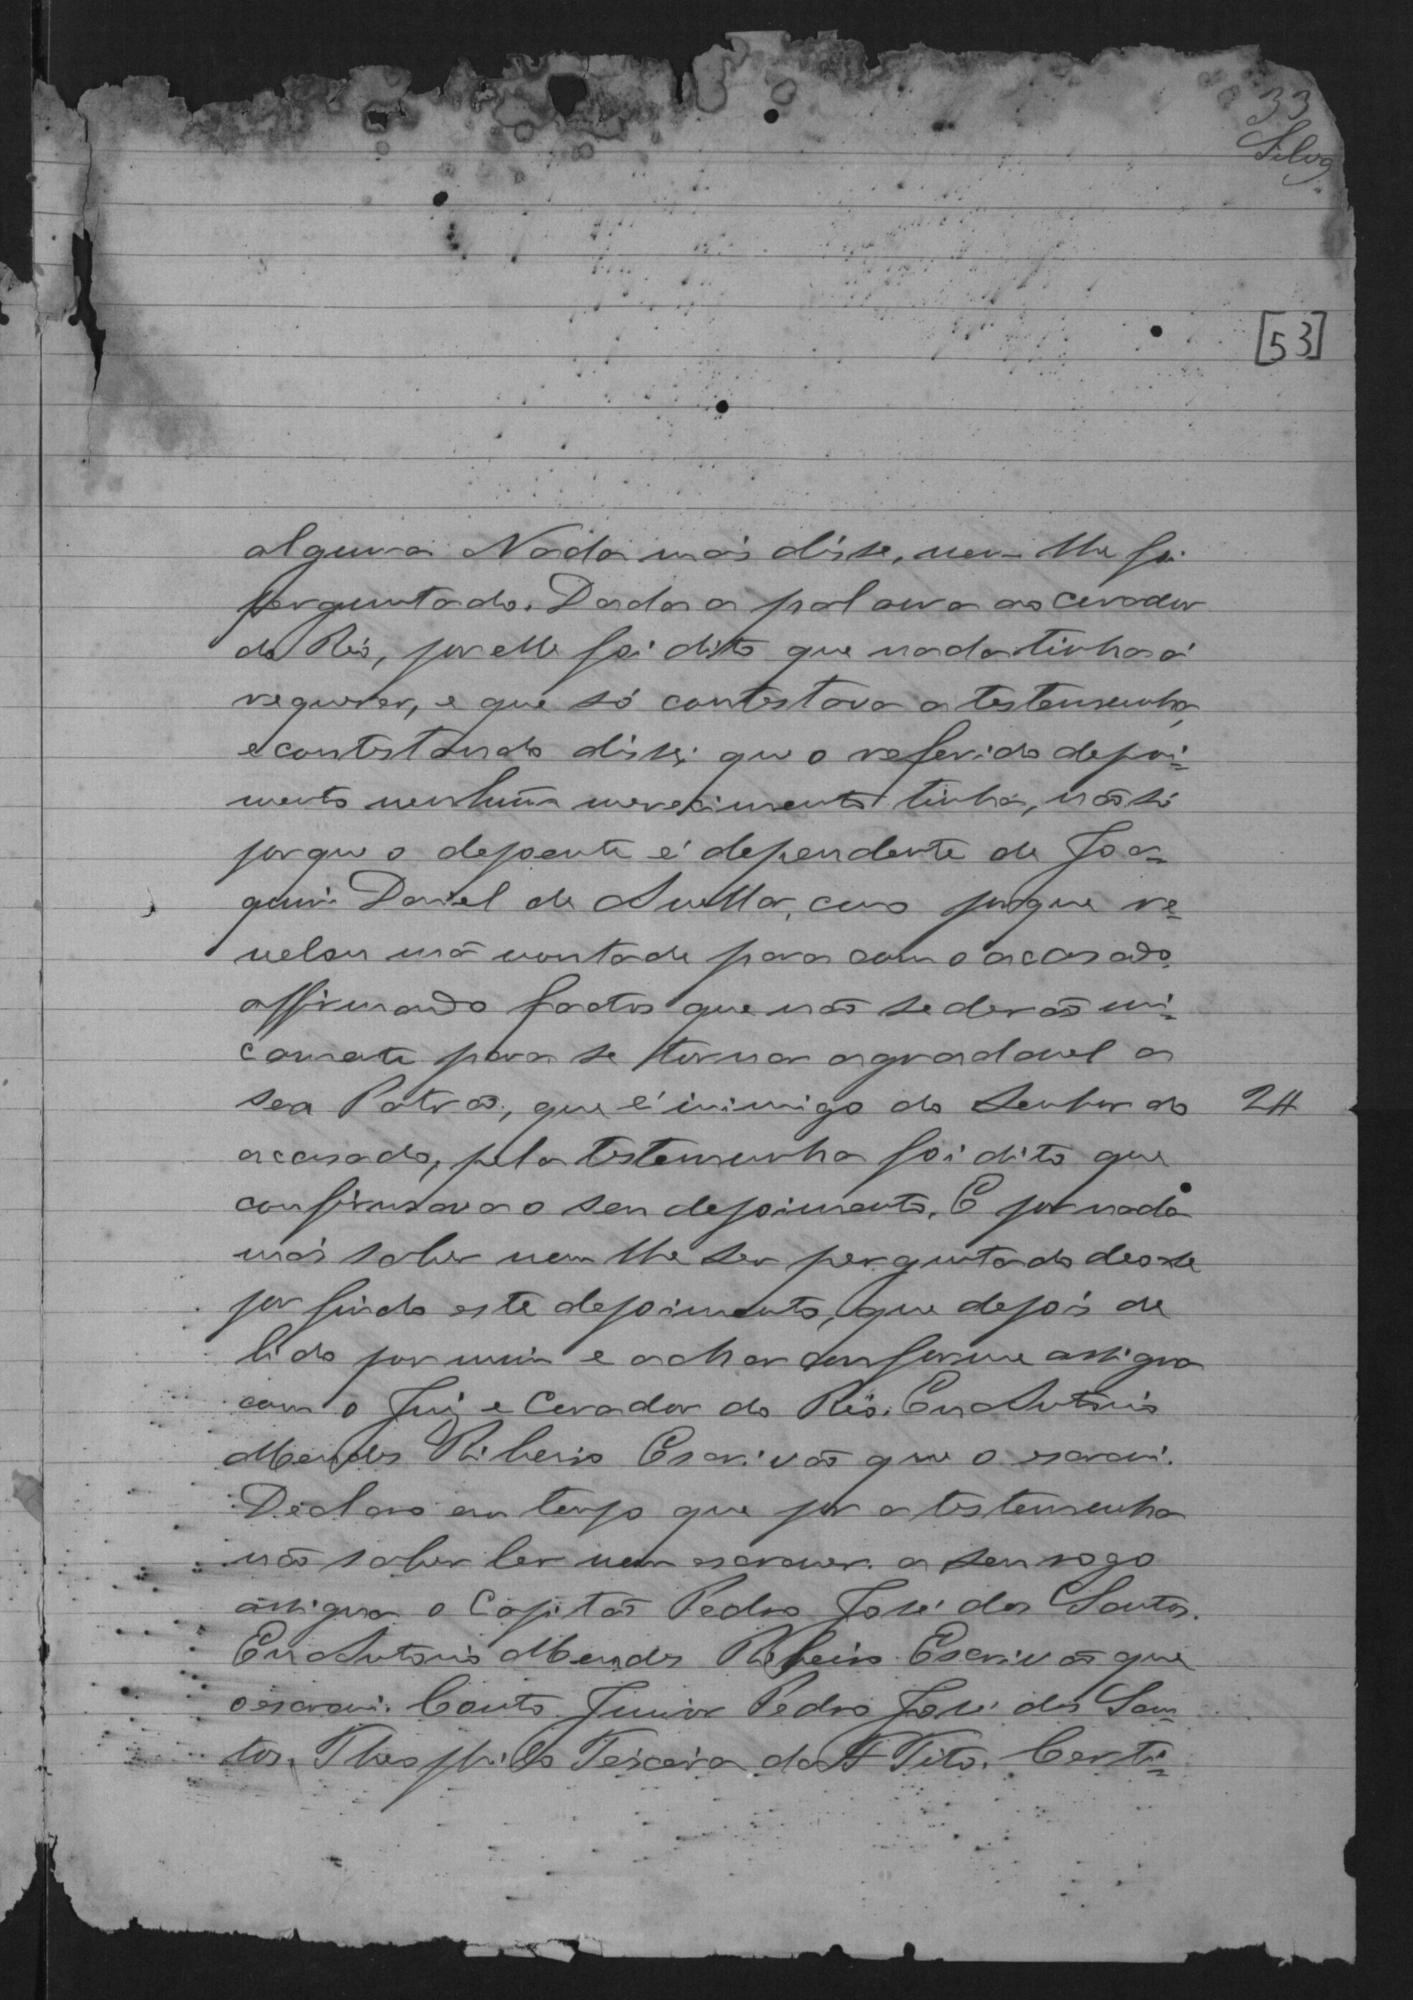 33
Silva
[53]
alguma Nada mais disse, nem lhe foi
perguntado. Dada a palavra ao Curador
do Réo, por elle foi dito que nada tinha á
requerer, e que só contestava a testemunha,
e contestando disse; que o referido depoi=
mento nenhum merecimento tinha, não só
porque o depoente é dependente de Joa=
quim Daniel de Avellar, como porque re=
velou má vontade para com o acusado,
affirmando factos que não se derão uni=
camente para se tornar agradavel a
seu Patrão, que é inimigo do Senhor do
2#
acusado, pela testemunha foi dito que
confirmava o seu depoimento. E por nada
mais saber nem lhe ser perguntado deo-se
por findo este depoimento, que depois de
lido por mim e achar conforme assigna
com o Juiz e Curador do Réo. Eu Antonio
Mendes Ribeiro Escrivão que o escrevi.
Declaro em tempo que por a testemunha
não saber ler nem escrever a seu rogo
assigna o Capitão Pedro José dos Santos.
Eu Antonio Mendes Ribeiro Escrivão que
o escrevi. Couto Junior Pedro José dos San
tos. Theophilo Teixeira da F Tito. Certi=